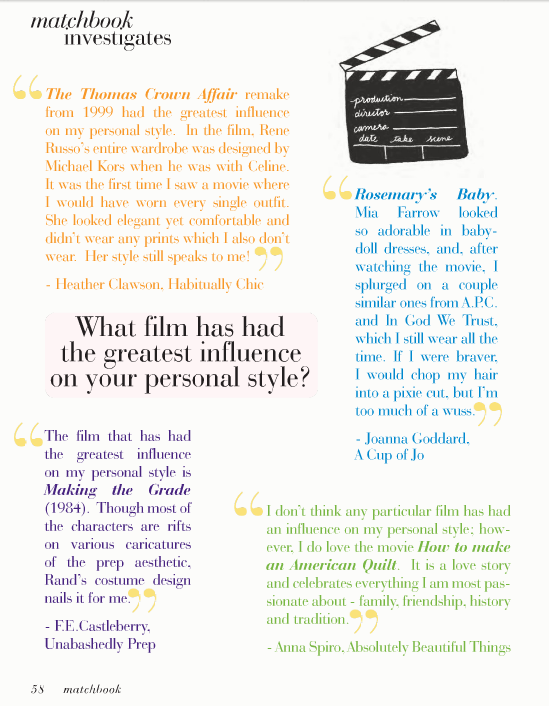 matchbook
investigates
The Thomas Crown Affair remake
from 1999 had the greatest influence
on my personal style. In the film, Rene
Russo's entire wardrobe was designed by
Michael Kors when he was with Celine.
It was the first time I saw a movie where
I would have worn every single outfit.
She looked elegant yet comfortable and
didn't wear any prints which I also don't
wear. Her style still speaks to me!
- Heather Clawson, Habitually Chic
production
director
camera
date take scene
Rosemary's Baby.
Mia Farrow looked
so adorable in baby-
doll dresses, and, after
watching the movie, I
splurged on a couple
similar ones from A.P.C.
and In God We Trust,
which I still wear all the
time. If I were braver,
I would chop my hair
into a pixie cut, but I'm
too much of a wuss.
- Joanna Goddard,
A Cup of Jo
What film has had
the greatest influence
on your personal style?
The film that has had
the greatest influence
on my personal style is
Making the Grade
(1984). Though most of
the characters are rifts
on various caricatures
of the prep aesthetic,
Rand's costume design
nails it for me.
- F.E.Castleberry,
Unabashedly Prep
I don't think any particular film has had
an influence on my personal style; how-
ever, I do love the movie How to make
an American Quilt. It is a love story
and celebrates everything I am most pas-
sionate about - family, friendship, history
and tradition.
- Anna Spiro, Absolutely Beautiful Things
58 matchbook